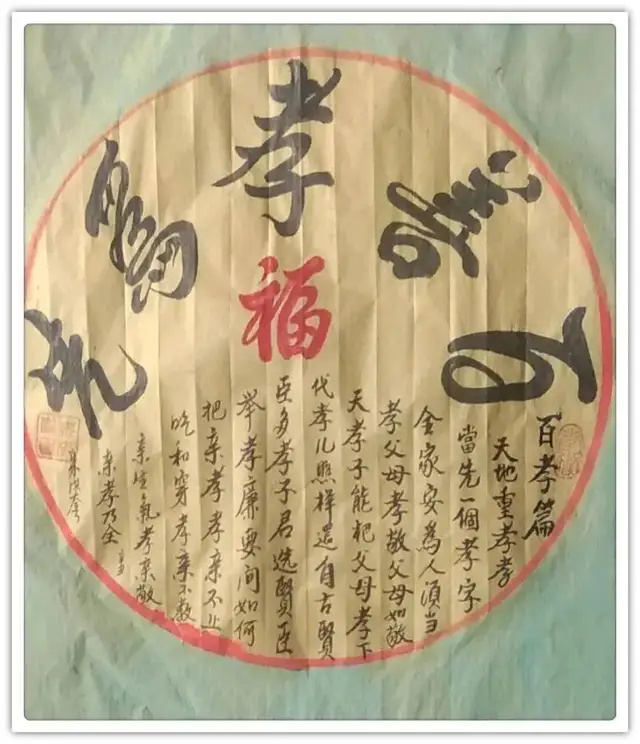 百善孝為先
福
百孝篇
天地重孝孝
當先一個孝字
全家安為人須当
孝父母孝敬父母如敬
天孝子能把父母孝下
代孝儿照樣還自古賢
臣多孝子君选賢臣
举孝廉要问如何
把亲孝孝亲不止
吃和穿孝亲不教
亲生氣孝亲敬
亲孝乃全